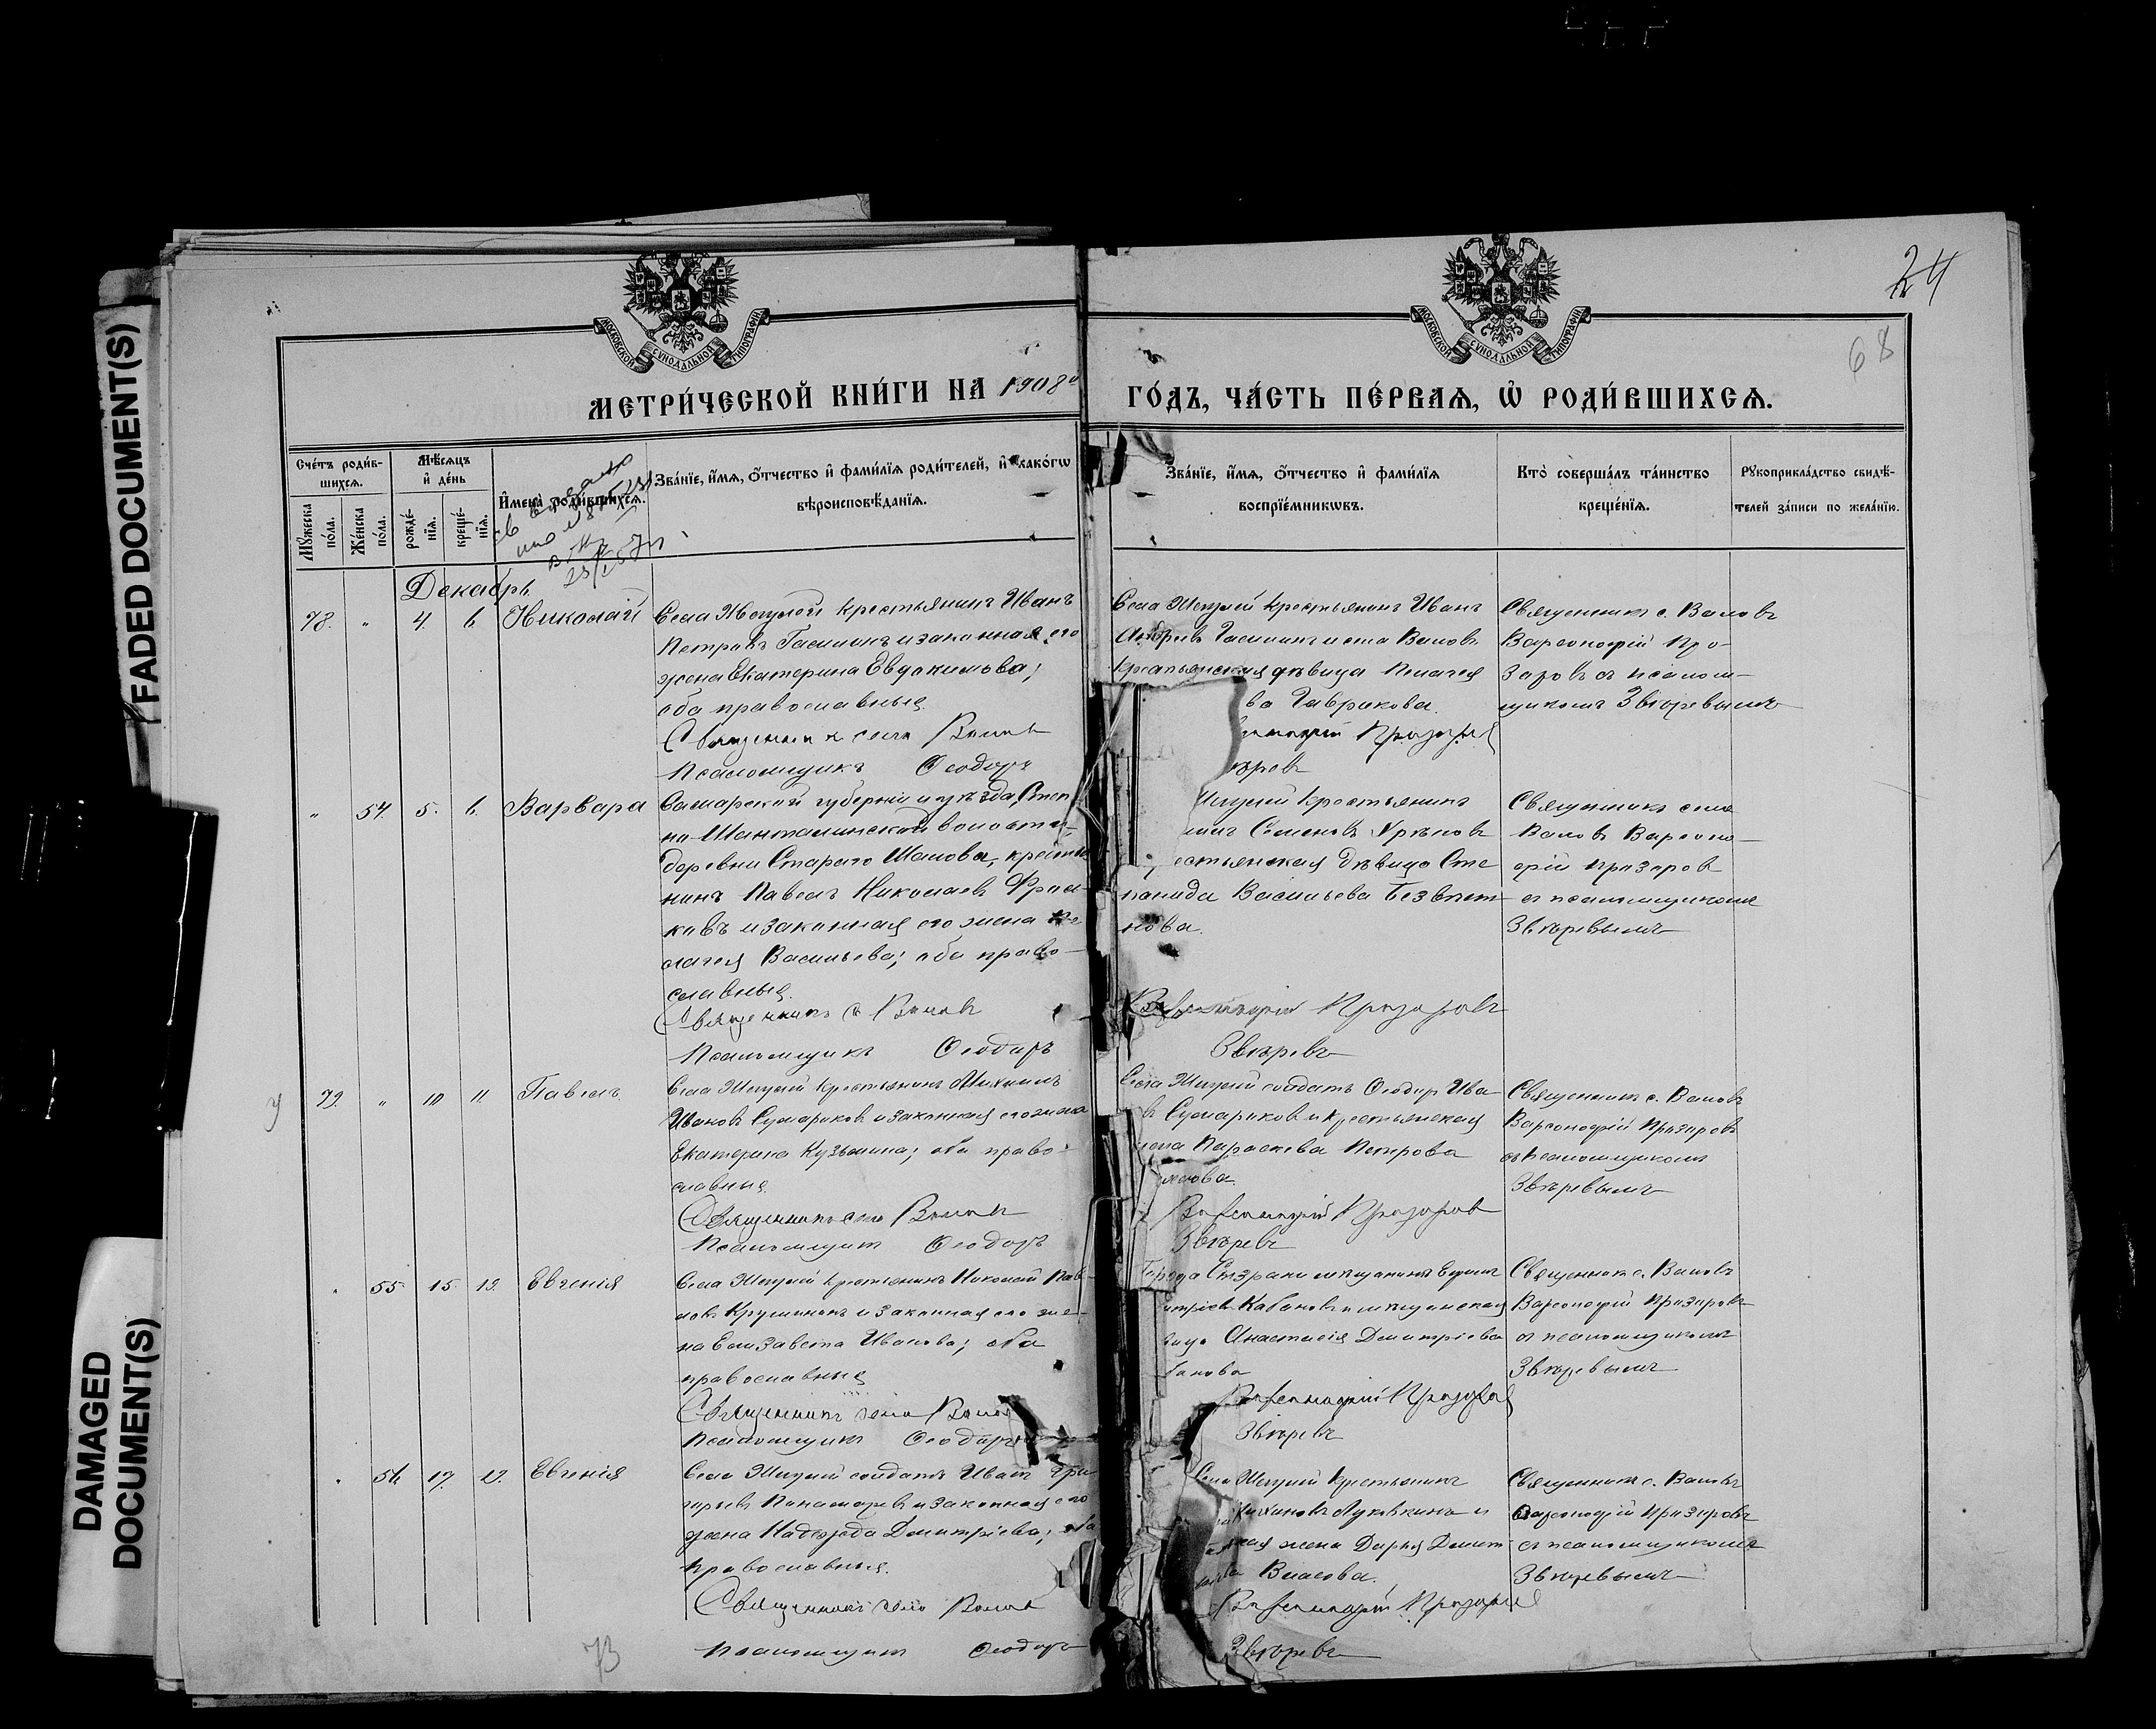 FADED DOCUMENT(S)
DAMAGED
DOCUMENT(S)
24
68
МОСКОВСКОЙ СѴНОДАЛЬНОЙ ТИПОГРАФІИ
МОСКОВСКОЙ СѴНОДАЛЬНОЙ ТИПОГРАФІИ
МЕТРИ́ЧЕСКОЙ КНИ́ГИ НА 1908
ГО́ДЪ, ЧА́СТЬ ПЕ́РВАѦ, Ѽ РОДИ́ВШИХСѦ.
Сче́тъ роди́в-
шихсѧ.
Мꙋ́жеска по́ла.
Же́нска по́ла.
Мѣ́сѧцъ и҆ де́нь
рожде́-
нїѧ.
креще́-
нїѧ.
И҆мена̀ роди́вшихсѧ.
Зва́нїе, и҆́мѧ, ѻ҆́тчество и҆ фами́лїѧ роди́телей, и҆ како́гѡ
вѣроисповѣ́данїѧ.
Зва́нїе, и҆́мѧ, ѻ҆́тчество и҆ фами́лїѧ
воспрїе́мникѡвъ.
Кто̀ соверша́лъ та́инство
креще́нїѧ.
Рꙋкоприкла́дство свидѣ́-
телей за́писи по жела́нїю.
Декабрь
78. " 4. 6. Николай
Села Жегулей крестьянинъ Иванъ
Петровъ и законная его
жена Екатерина Евдокимова;
оба православные
Священник села Валовъ
Псаломщикъ Ѳеодоръ
Села Жегулей крестьянинъ Иванъ
крестьянская дѣвица Пелагея
ва Гаврикова.
Прозоров
ѣревъ
Священникъ с. Валовъ
Варсонофій Про-
заровъ съ псалом-
щикомъ Звѣревымъ
" 54. 5. 6. Варвара
Самарской губерніи и уѣзда, Степ-
но-Шанталинской волости,
деревни Стараго крестья
нинъ Павелъ Николаевъ
ковъ и законная его жена Пе
лагея Васильева; оба право-
славные.
Священникъ с. Валовъ
Псаломщикъ Ѳеодоръ
крестьянинъ
Семеновъ
естьянская дѣвица Сте
панида Васильева
нова.
Варсонофій Прозоровъ
Звѣревъ
Священникъ села
Валовъ Варсоно-
фій Прозоров
съ псаломщикомъ
Звѣревымъ
79. " 10 11. Павелъ
Села Жегулей крестьянинъ Михаилъ
Ивановъ Сумариков и законная его жена
Екатерина Кузьмина; оба право-
славные
Священникъ села Валовъ
Псаломщикъ Ѳеодоръ
Села Жегулей солдатъ Ѳеодор Ива
въ Сумариков и крестьянская
жена Параскева Петрова
Варсонофій Прозоров
Звѣревъ
Священникъ с. Валовъ
Варсонофій Прозоровъ
съ псаломщикомъ
Звѣревымъ
" 55. 15. Евгенія
Села Жегулей крестьянинъ Николай Пав
ловъ и законная его же-
на Елизавета Иванова; оба
православные
Священникъ села Валовъ
Псаломщикъ Ѳеодоръ
Города Сызрани мѣщанинъ
итріев Кабановъ и мѣщанская
вица Анастасія Димитріева
банова
Варсонофій Прозоров
Звѣревъ
Священникъ с. Валовъ
Варсонофій Прозоровъ
съ псаломщикомъ
Звѣревымъ
" 56. 17. Евгенія
Села Жегулей солдатъ Иванъ Гри
горьев Пономарев и законная его
жена Надежда Димитріева; оба
православные.
Священникъ села Валовъ
Псаломщикъ Ѳеодоръ
Села Жегулей крестьянинъ
и
ская жена Дарья Димит
Власова.
Варсонофій Прозоров
Звѣревъ
Священникъ с. Валовъ
Варсонофій Прозоровъ
съ псаломщикомъ
Звѣревымъ
73